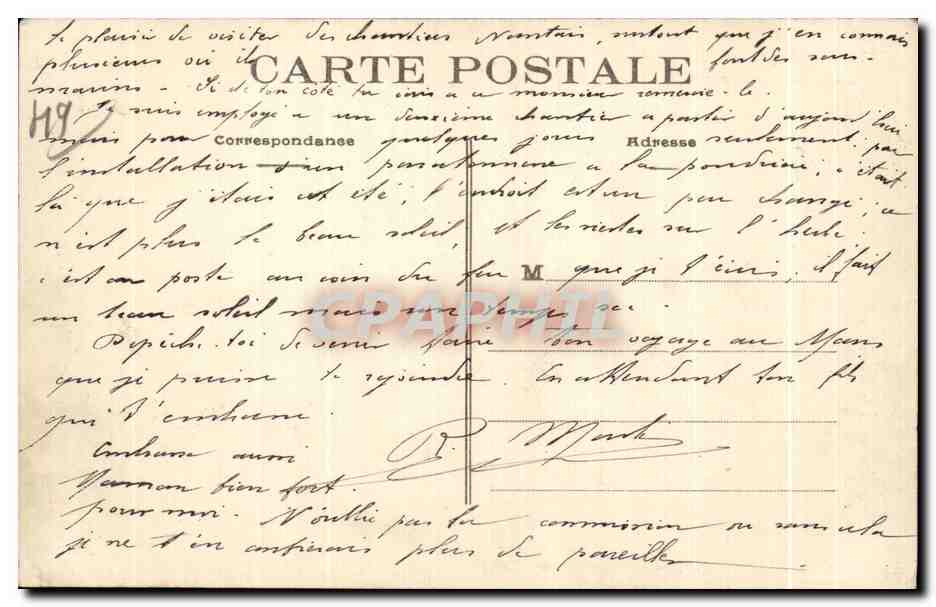 le plaisir de visiter des chantiers Nantais, surtout que j'en connais
plusieurs où ils font des sous-
CARTE POSTALE
marins - Si de ton côté tu écris à ce monsieur remercie-le.
Je suis employé à un deuxième chantier à partir d'aujourd'hui
49
mais pour quelques jours seulement, par
Correspondance Adresse
l'installation d'un paratonnerre à la poudrière, c'était
là que j'étais cet été, l'endroit est un peu changé, ce
n'est plus le beau soleil, et les siestes sur l'herbe.
c'est au poste au coin du feu que je t'écris, il fait
M
un beau soleil mais un temps sec
CPAPHIL
Dépêche-toi de venir faire ton voyage au Mans
que je puisse te rejoindre. En attendant ton fils
qui t'embrasse.
R.
Embrasse aussi
Maman bien fort
pour moi. N'oublie pas la commission ou sans cela
je ne t'en confierais plus de pareilles